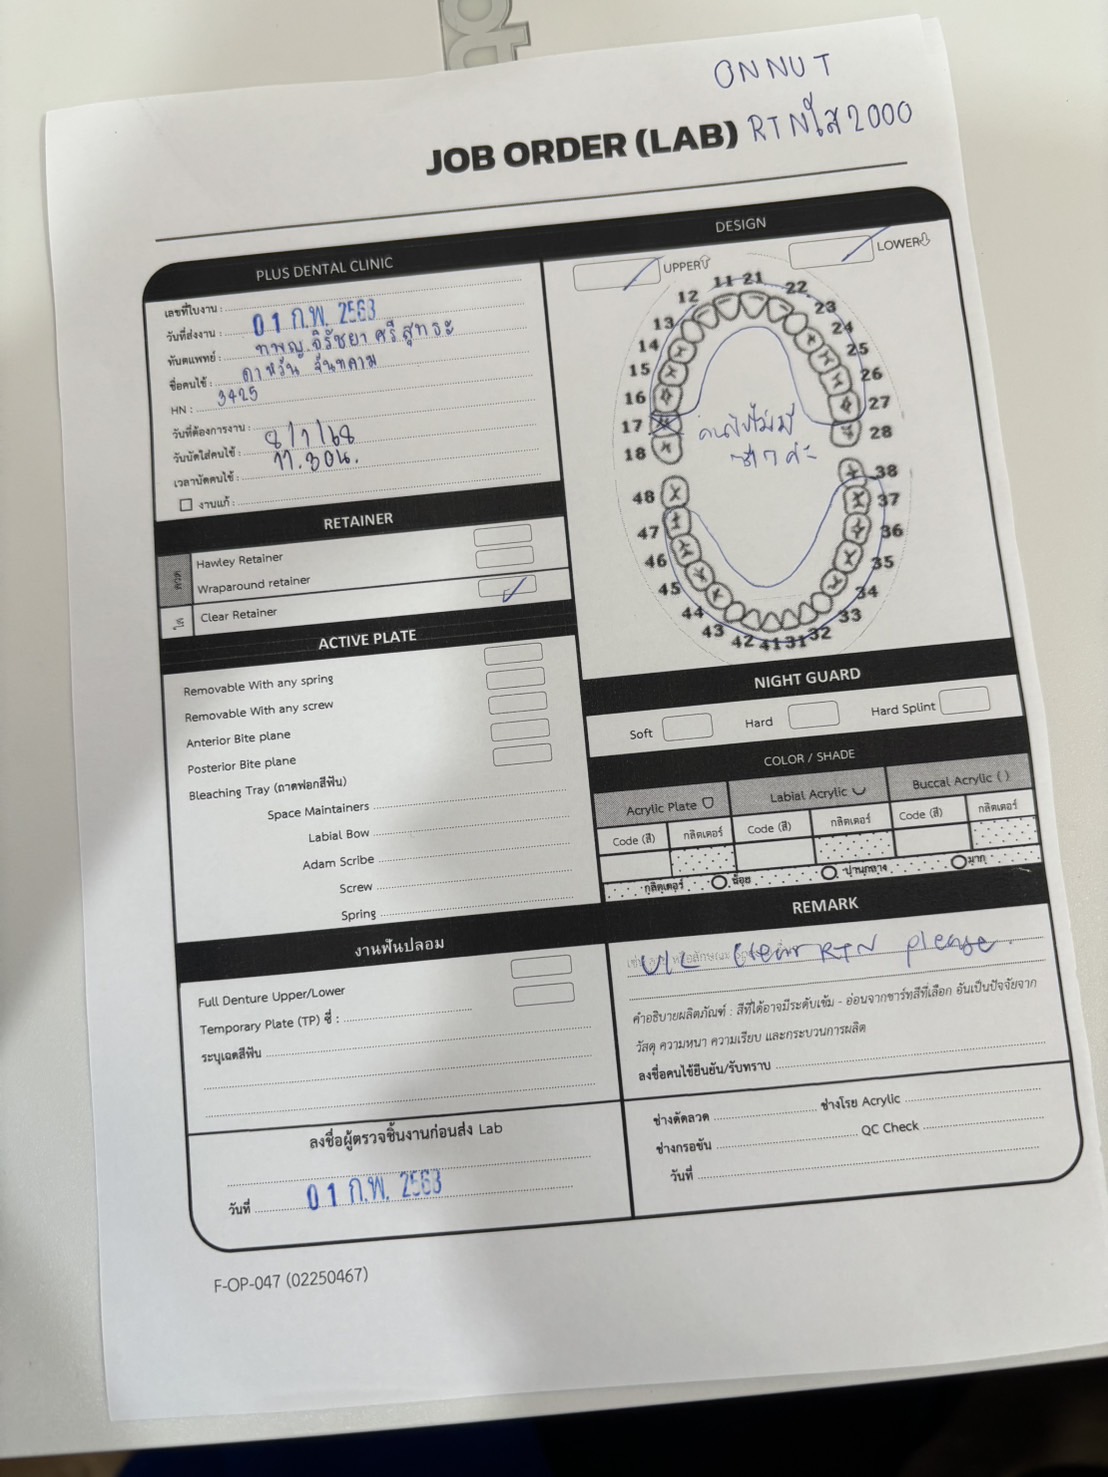 ONNUT
JOB ORDER (LAB) RTNใส 2000
PLUS DENTAL CLINIC
เลขที่ใบงาน :
วันที่ส่งงาน : 01 ก.พ. 2563
ทันตแพทย์ : ทพญ.จิรัชยา ศรีสุทธะ
ชื่อคนไข้ : ดาหวัน จันทคาม
HN : 3425
วันที่ต้องการงาน :
วันนัดใส่คนไข้ : 8/1/68
เวลานัดคนไข้ : 11.30น.
งานแก้ :
RETAINER
ลวด
Hawley Retainer
Wraparound retainer
ใส
Clear Retainer
ACTIVE PLATE
Removable With any spring
Removable With any screw
Anterior Bite plane
Posterior Bite plane
Bleaching Tray (ถาดฟอกสีฟัน)
Space Maintainers
Labial Bow
Adam Scribe
Screw
Spring
งานฟันปลอม
Full Denture Upper/Lower
Temporary Plate (TP) ซี่ :
ระบุเฉดสีฟัน
ลงชื่อผู้ตรวจชิ้นงานก่อนส่ง Lab
วันที่ 01 ก.พ. 2563
DESIGN
UPPER LOWER
11 21
12 22
13 23
14 24
15 25
16 26
17 27
18 28
คนไข้ไม่มี
ซี่17 ค่ะ
48 38
47 37
46 36
45 35
44 34
43 33
42 41 31 32
NIGHT GUARD
Soft Hard Hard Splint
COLOR / SHADE
Acrylic Plate Labial Acrylic Buccal Acrylic ( )
Code (สี) กลิตเตอร์ Code (สี) กลิตเตอร์ Code (สี) กลิตเตอร์
กลิตเตอร์ น้อย ปานกลาง มาก
REMARK
U/L Clear RTN please
คำอธิบายผลิตภัณฑ์ : สีที่ได้อาจมีระดับเข้ม - อ่อนจากชาร์ทสีที่เลือก อันเป็นปัจจัยจาก
วัสดุ ความหนา ความเรียบ และกระบวนการผลิต
ลงชื่อคนไข้ยืนยัน/รับทราบ
ช่างดัดลวด ช่างโรย Acrylic
ช่างกรอขัน QC Check
วันที่
F-OP-047 (02250467)